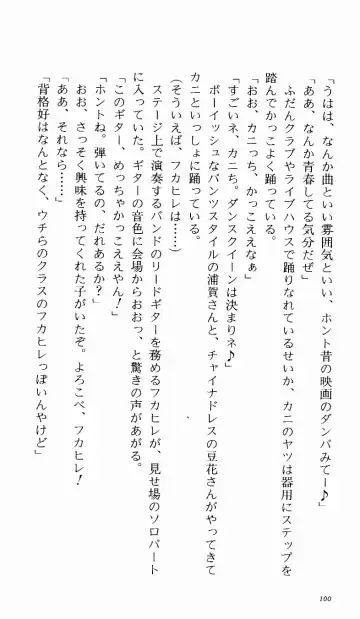 「うはは、なんか曲といい雰囲気といい、ホント昔の映画のダンパみてー♪」
「ああ、なんか青春してる気分だぜ」
ふだんクラブやライブハウスで踊りなれているせいか、カニのヤツは器用にステップを
踏んでかっこよく踊っている。
「おお、カニっち、かっこええなぁ」
「すごいネ、カニち。ダンスクイーンは決まりネ♪」
ボーイッシュなパンツスタイルの浦賀さんと、チャイナドレスの豆花さんがやってきて
カニといっしょに踊っている。
（そういえば、フカヒレは……）
ステージ上で演奏するバンドのリードギターを務めるフカヒレが、見せ場のソロパート
に入っていた。ギターの音色に会場からおおっ、と驚きの声があがる。
「このギター、めっちゃかっこええやん！」
「ホントね。弾いてるの、だれあるか？」
おお、さっそく興味を持ってくれた子がいたぞ。よろこべ、フカヒレ！
「ああ、それなら……」
「背格好はなんとなく、ウチらのクラスのフカヒレっぽいんやけど」
100